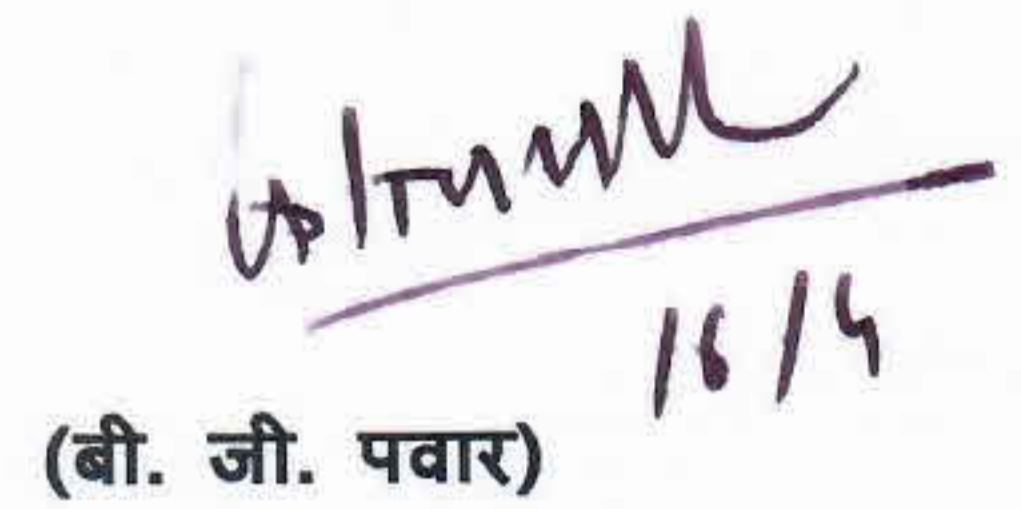 16/4
(बी. जी. पवार)